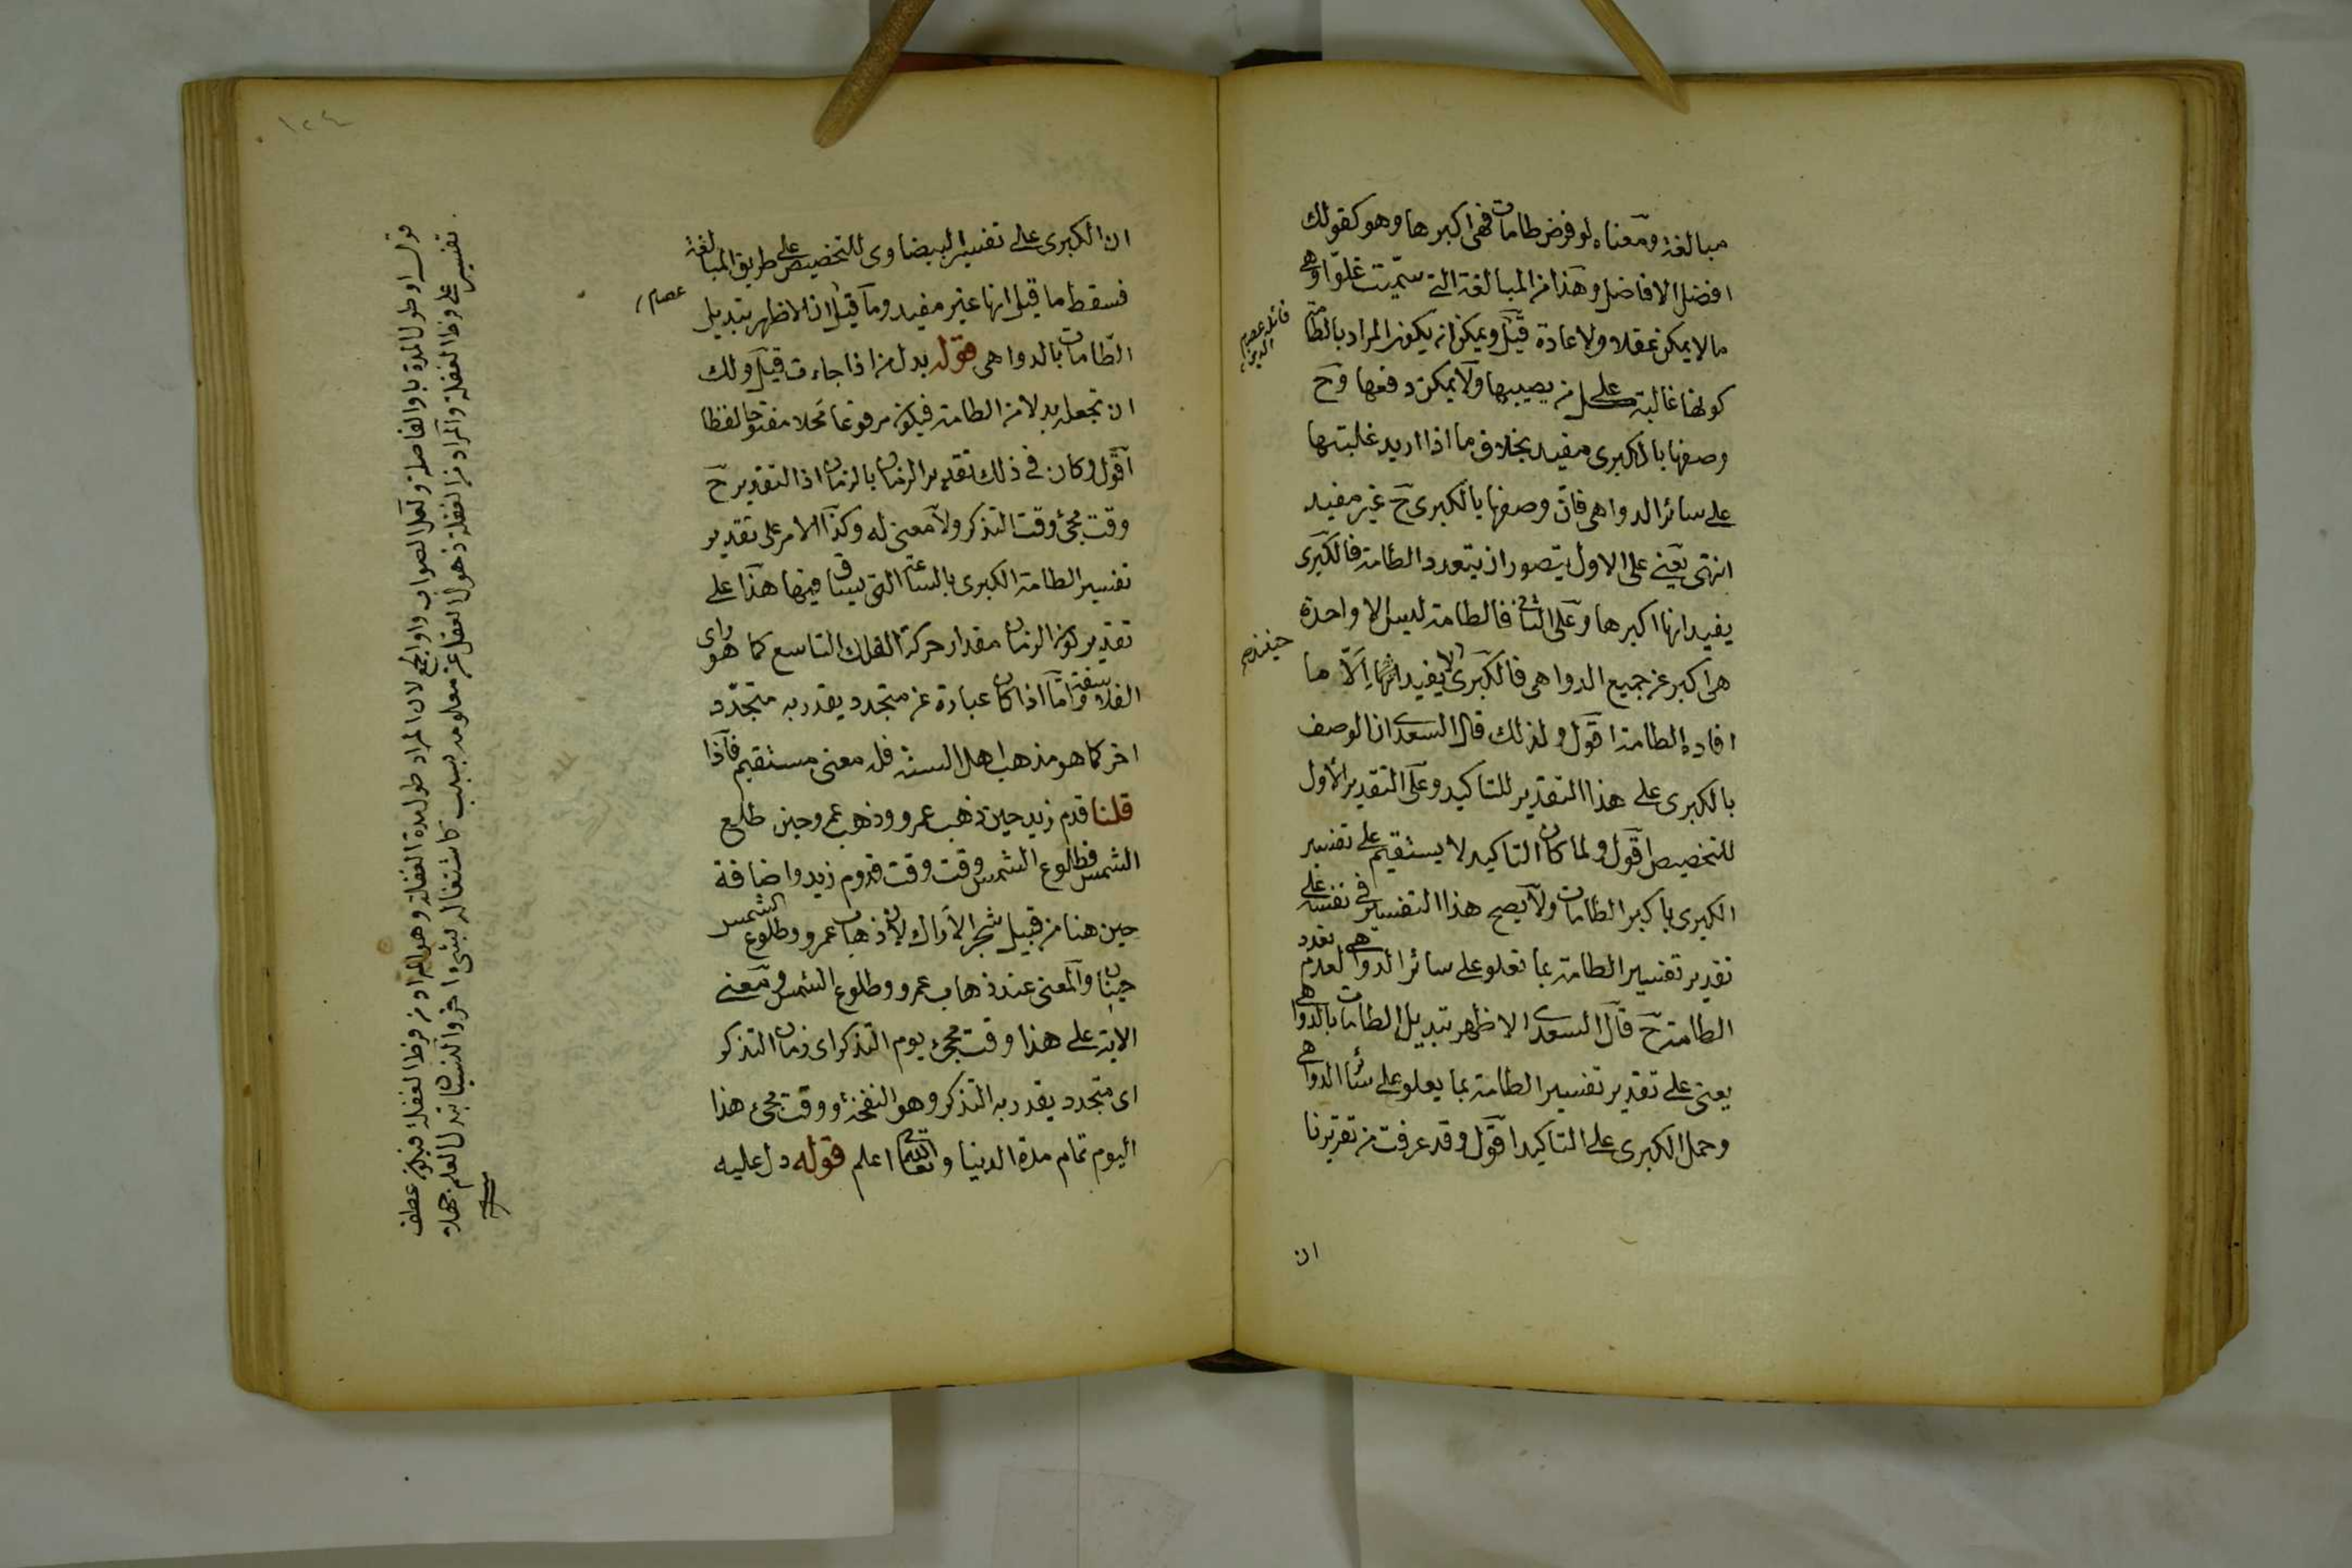 مبالغة ومعناه لو فرض طامات فهى اكبرها وهو كقولك
افضل الافاضل وهذا من المبالغة التى سميت غلوا وهى
مالا يمكن عقلا ولا عادة قيل ويمكن ان يكون المراد بالطامة
كونها غالبة على كل من يصيبها ولا يمكن دفعها وح
وصفها بالكبرى مفيد بخلاف ما اذا اريد غلبتها
على سائر الدواهى فان وصفها بالكبرى ح غير مفيد
انتهى يعنى على الاول يتصور ان يتعدد الطامة فالكبرى
يفيد انها اكبرها وعلى الثانى فالطامة ليس الا واحدة
هى اكبر عن جميع الدواهى فالكبرى لا يفيد الا ما
افاده الطامة اقول ولذلك قال السعدى ان الوصف
بالكبرى على هذا التقدير للتاكيد وعلى التقدير الأول
للتخصيص اقول ولما كان التاكيد لا يستقيم على تفسير
الكبرى باكبر الطامات ولا يصح هذا التفسير فى نفسه على
تقدير تفسير الطامة بما تعلو على سائر الدواهى لعدم تعدد
الطامة ح قال السعدى الاظهر تبديل الطامات بالدواهى
يعنى على تقدير تفسير الطامة بما يعلو على سائر الدواهى
وحمل الكبرى على التاكيد اقول وقد عرفت من تقريرنا
ان
قائله عصام الدين
ان الكبرى على تفسير البيضاوى للتخصيص على طريق المبالغة
فسقط ما قيل انها غير مفيد وما قيل ان الاظهر تبديل
الطامات بالدواهى قوله بدل من اذا جاءت قيل ولك
ان تجعله بدلا من الطامة فيكون مرفوعا محلا مفتوحا لفظا
اقول وكان فى ذلك تقدير الزمان بالزمان اذ التقدير ح
وقت مجئ وقت التذكر ولا معنى له وكذا الامر على تقدير
تفسير الطامة الكبرى بالساعة التى يساق فيها هذا على
تقدير كون الزمان مقدار حركة الفلك التاسع كما هو راى
الفلاسفة واما اذا كان عبارة عن متجدد يقدر به متجدد
اخر كما هو مذهب اهل السنة فله معنى مستقيم فاذا
قلنا قدم زيد حين ذهب عمرو وذهب عمرو حين طلع
الشمس فطلوع الشمس وقت وقت قدوم زيد واضافة
حين هنا من قبيل شجر الأراك لان ذهاب عمرو وطلوع الشمس
حينان والمعنى عند ذهاب عمرو وطلوع الشمس ومعنى
الاية على هذا وقت مجئ يوم التذكر اى زمان التذكر
اى متجدد يقدر به التذكر وهو النفخة ووقت مجئ هذا
اليوم تمام مدة الدنيا والله تعالى اعلم قوله دل عليه
عصام
قوله او طول المدة باو الفاصلة ولعل الصواب واو الجمع لان المراد طول مدة الغفلة وهو المراد من فرط الغفلة فيكون عطف
تفسير على فرط الغفلة والمراد من الغفلة ذهول العقل عن معلومه بسبب كاشتغاله بشئ اخر والنسيان تبدل العلم جهلا
١٢٤